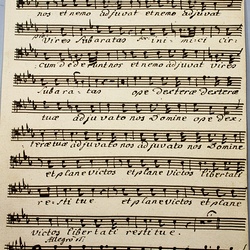 nos et nemo adjuvat et nemo adjuvat
vires subaratas inimici cir,
cumdederunt nos et nemo adjuvat vires
subaratas ope dexterae dexterae
tuae adjuvato nos Domine ope dex,
terae tuae adjuvato nos adjuvato nos Domine
et plane victos et plane victos libertati
restitue et plane victos et plane
victos libertati restitue.
Allegro